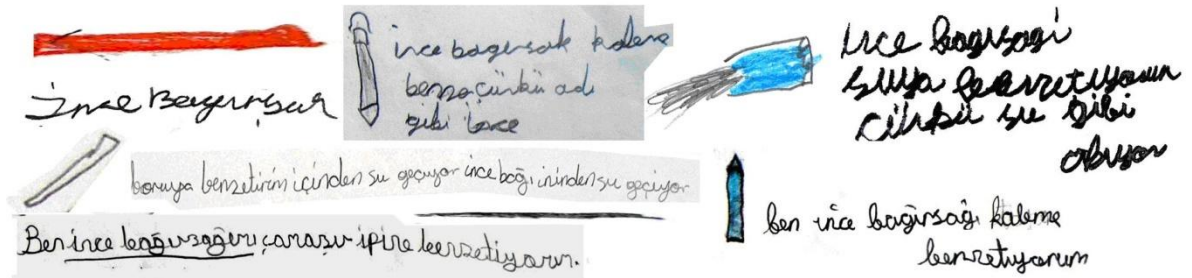 İnce Bağırsak
ince bagırsak kaleme
benzo çünkü adı
gibi ince
ince bagısagi
suya benzetiyorum
çünkü su gibi
akıyor
boruya benzetirim içinden su geçiyor ince bağı ininden su geçiyor
Ben ince bağırsağımı çamaşır ipine benzetiyorum.
ben ince bağırsağı kaleme
benzetiyorum